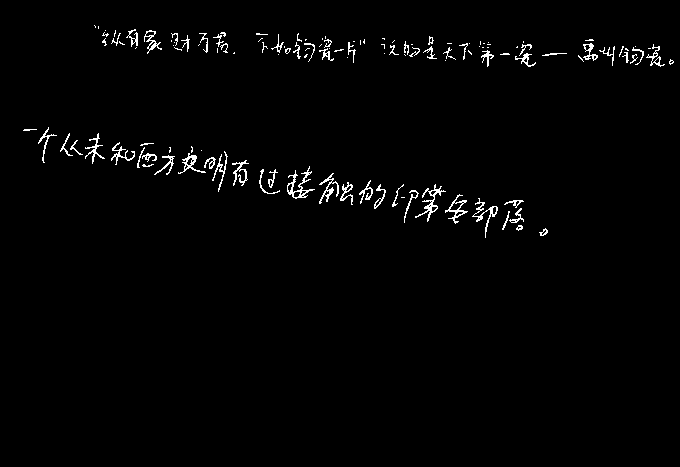 “纵有家财万贯，不如钧瓷一片”说的是天下第一瓷—禹州钧瓷。
一个从未和西方文明有过接触的印第安部落。